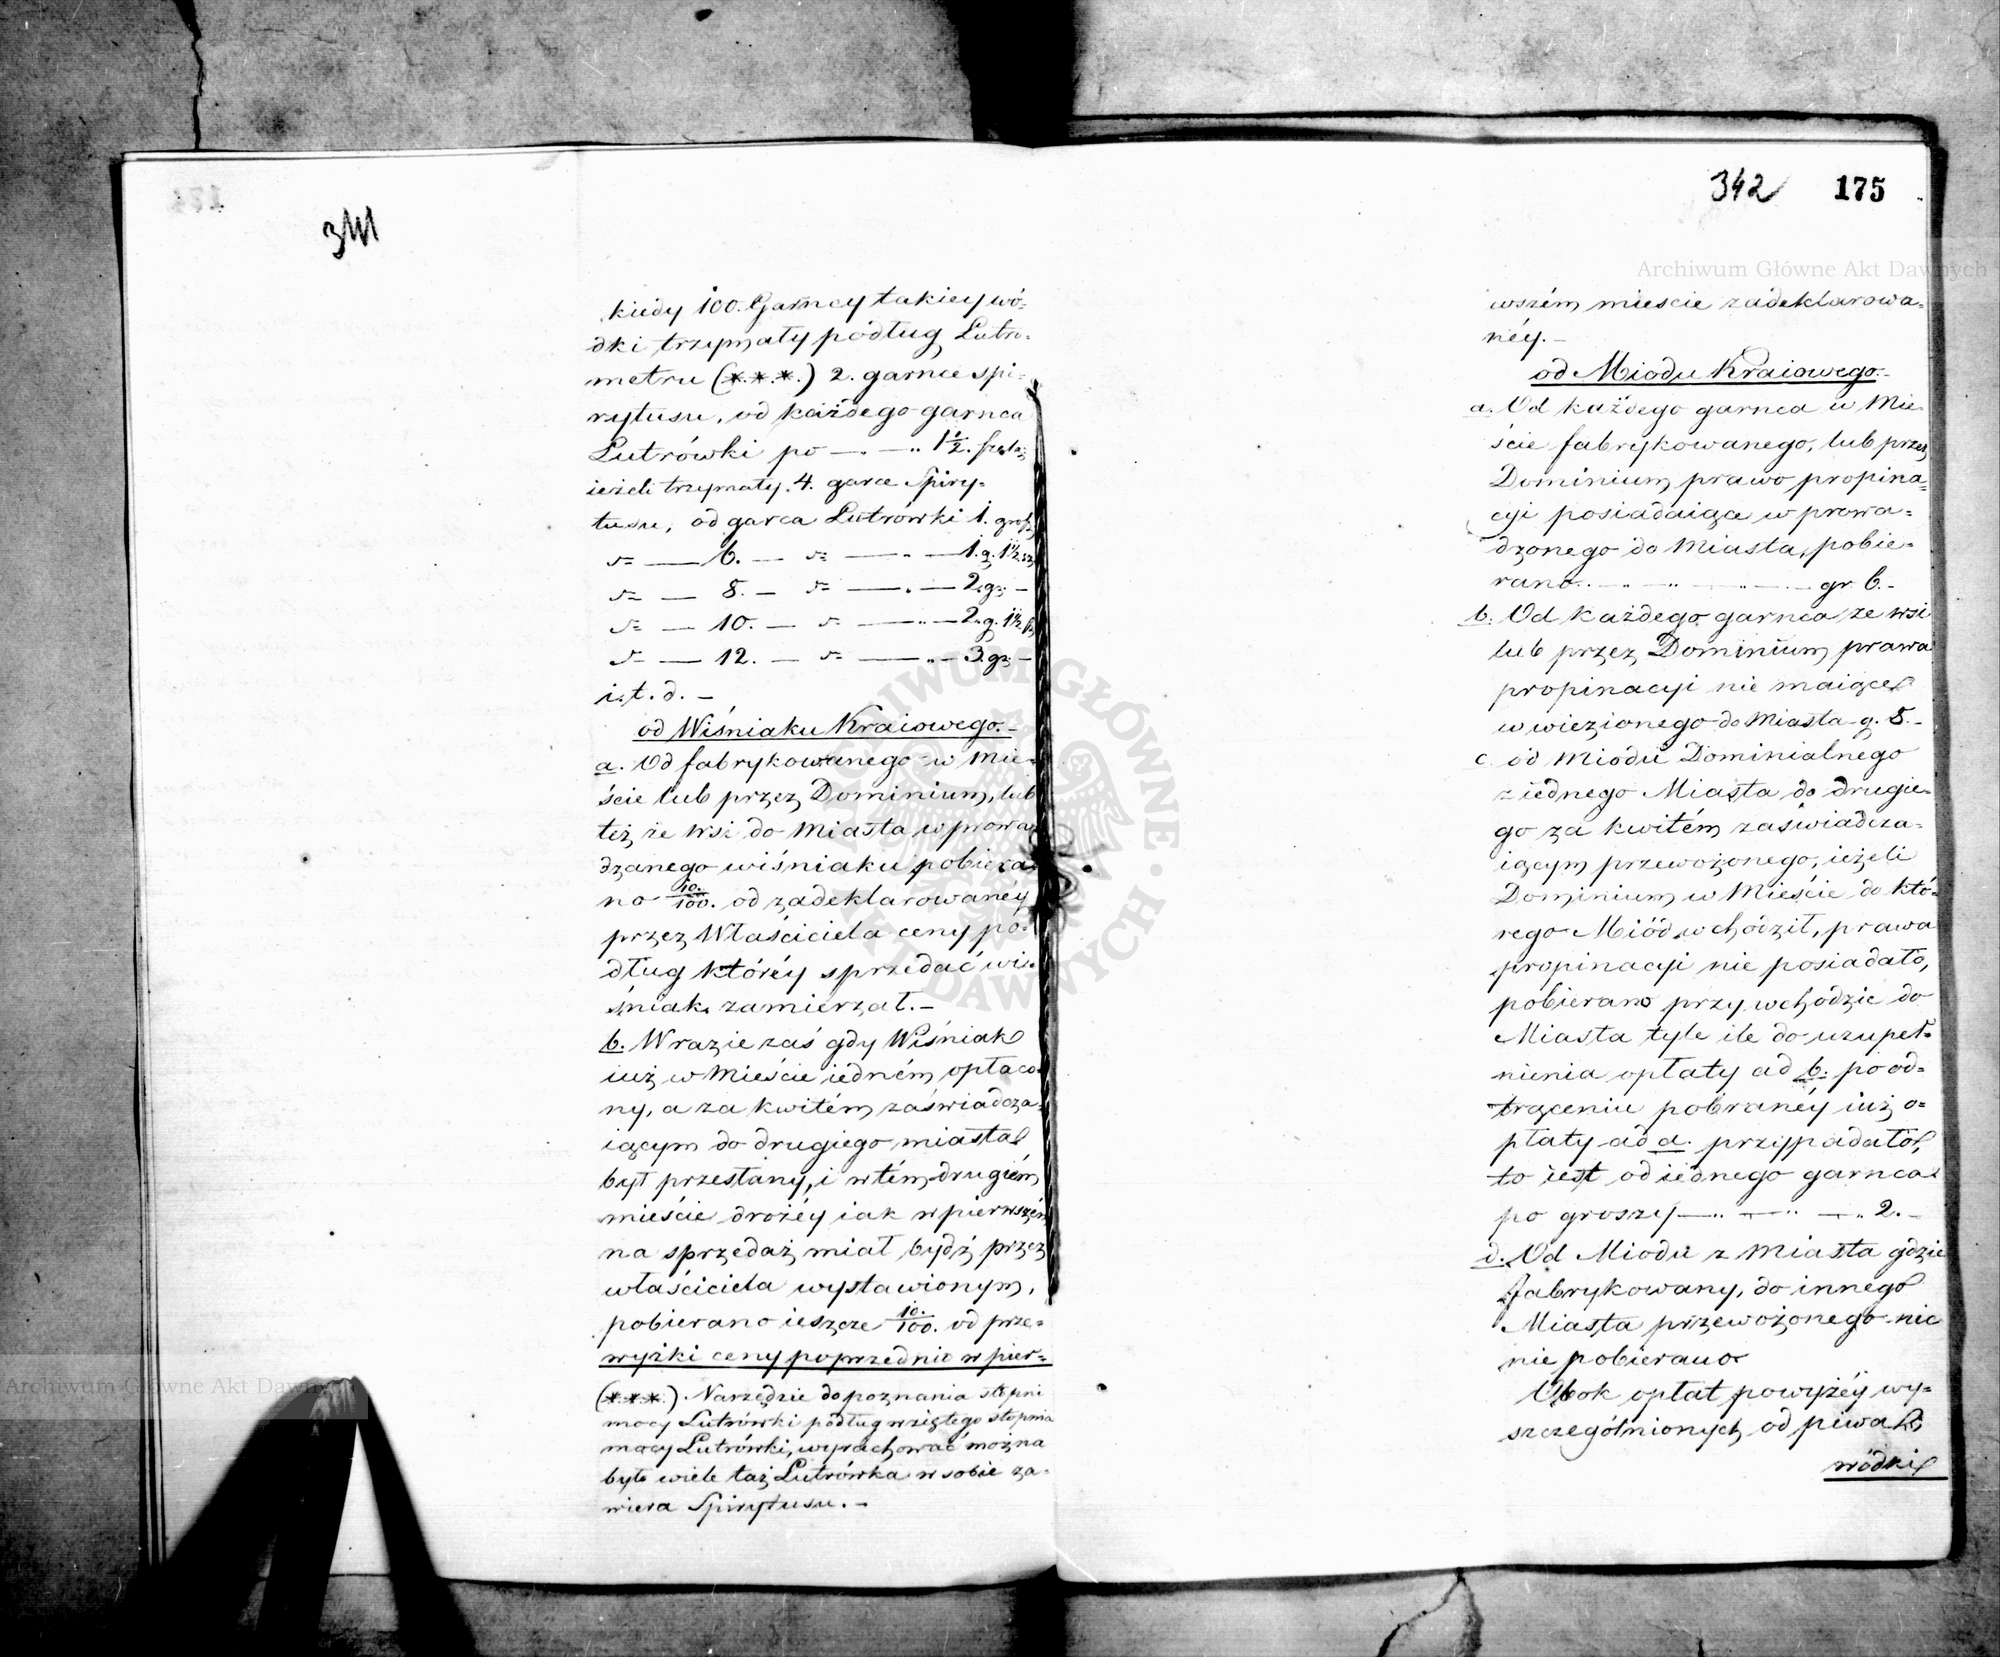 341
kiedy 100. Garncy takiey wó-
dki trzymały podług Lutro-
metru (*.*.*.) 2. garnce spi-
rytusu, od każdego garnca
Lutrówki po — . — .. 1 1/2. szela:
ieżeli trzymały 4. garce Spiry-
tusu, od garca Lutrówki 1. grosz
— 6. — — 1. g. 1 1/2. sz
— 8. — — 2. gr —
— 10. — — 2. g. 1 1/2 s
— 12. — — 3. gr —
i. t. d. —
od Wiśniaku Kraiowego. —
a. Od fabrykowanego w Mie-
ście lub przez Dominium, lub
też ze wsi do Miasta wprowa-
dzanego wiśniaku pobiera-
no 10./100. od zadeklarowanéy
przez Właściciela ceny po-
dług któréy sprzedać wi-
śniak zamierzał. —
b. W razie zaś gdy Wiśniak
iuż w Mieście iedném opłaco-
ny, a za kwitém zaświadcza-
iącym do drugiego miasta
był przesłany, i w tém drugiém
mieście drożéy iak w pierwszém
na sprzedaż miał bydź przez
właściciela wystawionym,
pobierano ieszcze 10./100. od prze-
wyżki ceny poprzednio w pier-
(*.*.*.) Narzędzie do poznania stopni
mocy Lutrówki podług wziętego stopnia
mocy Lutrówki, wyrachować można
było wiele taż Lutrówka w sobie za-
wiera Spirytusu. —
342 175
wszém mieście zadeklarowa-
néy. —
od Miodu Kraiowego. —
a. Od każdego garnca w Mie-
ście fabrykowanego, lub przez
Dominium prawo propina-
cyi posiadaiące wprowa-
dzonego do Miasta, pobie-
rano. — gr 6. —
b. Od każdego garnca ze wsi
lub przez Dominium prawa
propinacyi nie maiące
wwiezionego do Miasta g. 8. —
c. od Miodu Dominialnego
z iednego Miasta do drugie-
go za kwitém zaświadcza-
iącym przewożonego, ieżeli
Dominium w Mieście do któ-
rego Miód wchódził, prawa
propinacyi nie posiadało,
pobierano przy wchodzie do
Miasta tyle ile do uzupeł-
nienia opłaty ad b. po od-
trąceniu pobranéy iuż o-
płaty ad a. przypadało,
to iest od iednego garnca
po groszy — .. — .. — .. 2. —
d. Od Miodu z Miasta gdzie
fabrykowany, do innego
Miasta przewożonego nic
nie pobierano.
Obok opłat powyżéy wy-
szczególnionych od piwa,
wódki